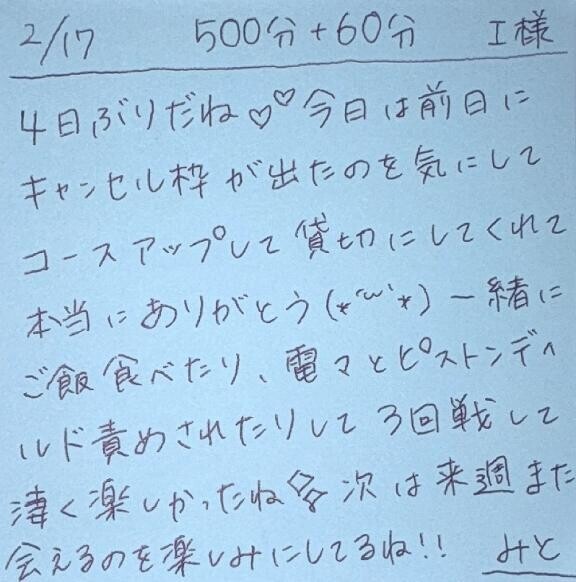 2/17 500分+60分 I様
4日ぶりだね♡♡今日は前日に
キャンセル枠が出たのを気にして
コースアップして貸切にしてくれて
本当にありがとう(*´ω`*)一緒に
ご飯食べたり、電マとピストンディ
ルド責めされたりして3回戦して
凄く楽しかったね 次は来週また
会えるのを楽しみにしてるね!! みと